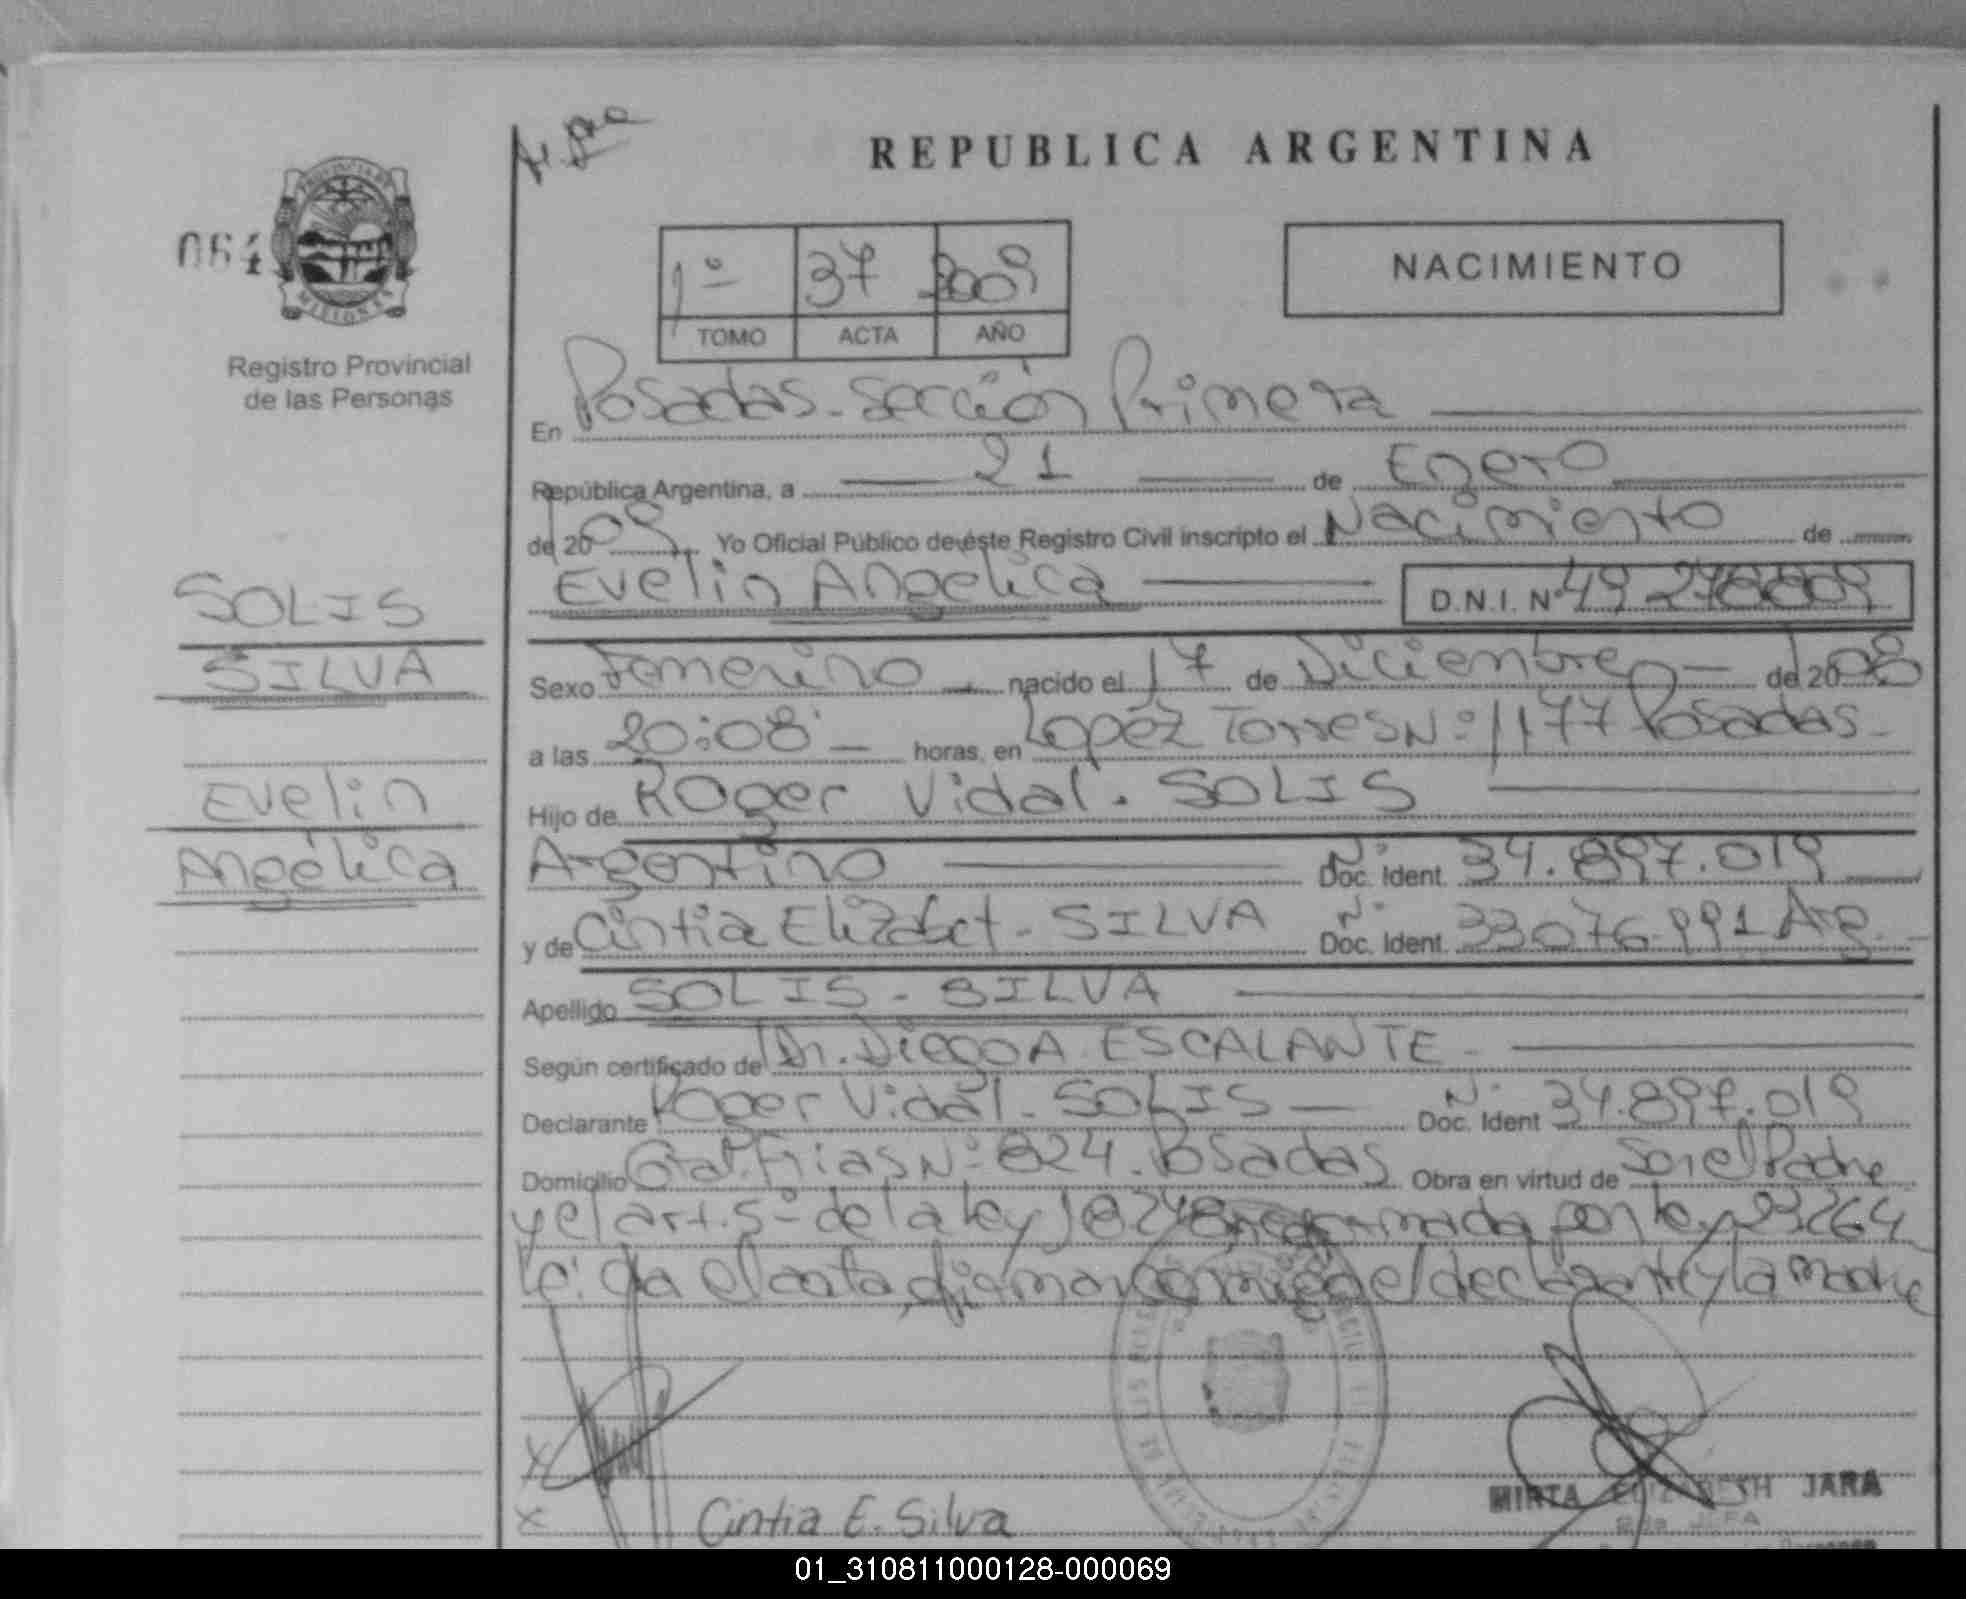 REPUBLICA ARGENTINA
064
PROVINCIA DE
MISIONES
Registro Provincial
de las Personas
1º 37 2009
TOMO ACTA AÑO
NACIMIENTO
En Posadas - Sección Primera
República Argentina, a 21 de Enero
de 2009 Yo Oficial Público de éste Registro Civil inscripto el Nacimiento de
Evelin Angelica D.N.I. Nº 49.
SOLIS
SILVA
Evelin
Angélica
Sexo Femenino nacido el 17 de Diciembre de 2008
a las 20:08 horas, en Lopez Torres Nº 1177 Posadas
Hijo de Roger Vidal. SOLIS
Argentino Nº Doc. Ident. 34.897.019
y de Cintia Elizabet - SILVA Nº Doc. Ident. 33076.991 Arg.
Apellido SOLIS - SILVA
Según certificado de Dr. Diego A. ESCALANTE
Declarante Roger Vidal - SOLIS Nº Doc. Ident 34.897.019
Domicilio Gral. Frias Nº 824. Posadas Obra en virtud de Ser el Padre
y el art. 5º de la ley 18248 por ley 23264
Leida el acta, firman conmigo el declarante y la madre
X
X Cintia E. Silva
MIRTA ELIZABETH JARA
JEFA
01_310811000128-000069